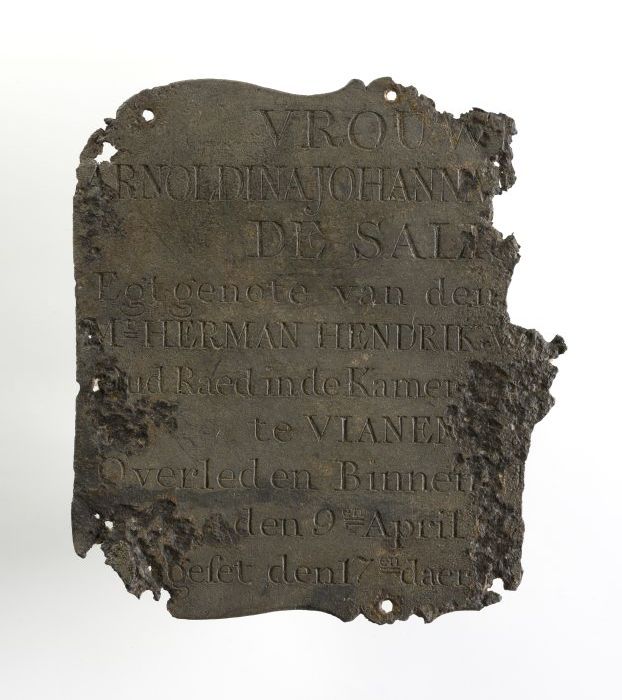 VROUW
ARNOLDINA JOHANNA
DE SALI
Egtgenote van den
Mr. HERMAN HENDRIK V
Oud Raed in de Kamer
te VIANEN
Overleden Binnen
den 9en April
geset den 17en daer